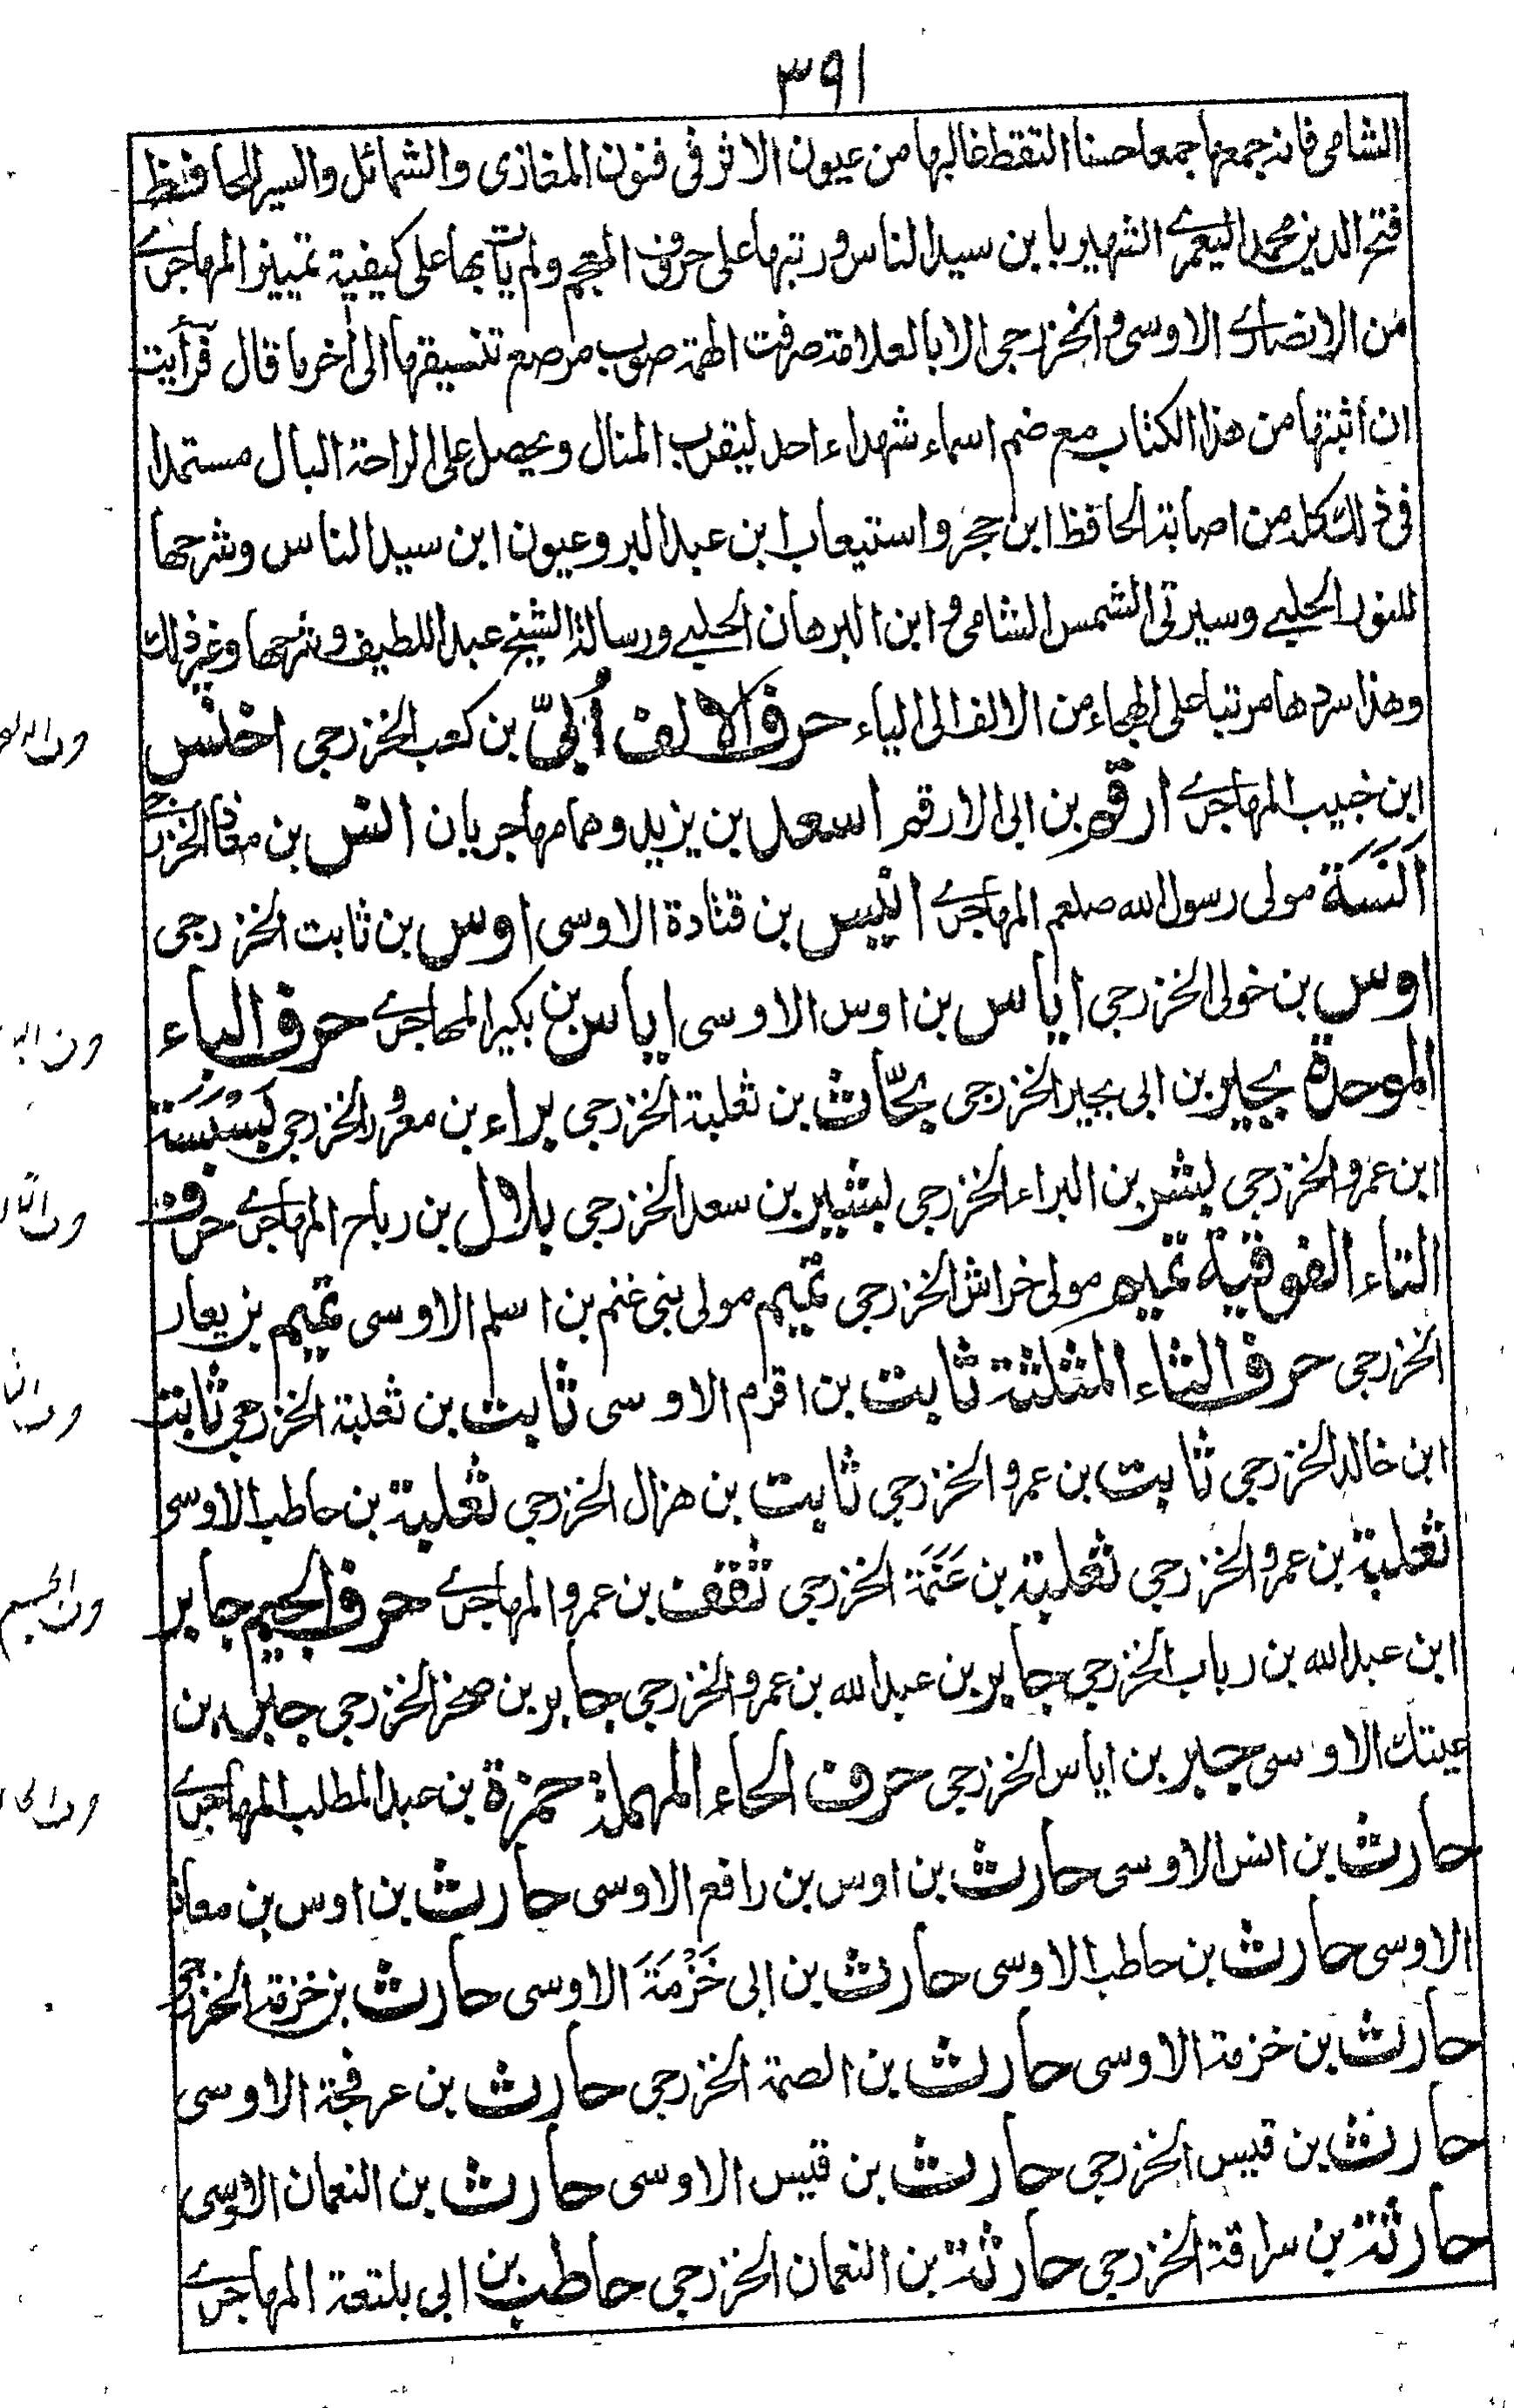 ٣٩١
الشامى فانه جمعها جمعا حسنا التقط غالبها من عيون الاثر فى فنون المغازى والشمائل والسير للحافظ
فتح الدين محمد اليعمرى الشهير بابن سيد الناس ورتبها على حروف المعجم ولم يأت بها على كيفية تمييز المهاجرى
من الانصارى الاوسى والخزرجى الا بالعلامة صرفت الهمة صوب مرصع تنسيقها الى اخر ما قال فرأيت
ان اثبتها من هذا الكتاب مع ضم اسماء شهداء احد ليقرب المنال ويحصل على الراحة البال مستمدا
فى ذلك كله من اصابة الحافظ ابن حجر واستيعاب ابن عبد البر وعيون ابن سيد الناس وشرحها
للنور الحلبى وسيرتى الشمس الشامى وابن البرهان الحلبى ورسالة الشيخ عبد اللطيف وشرحها وغير ذلك
وهذا سردها مرتبا على الهجاء من الالف الى الياء حرف الالف اُبىّ بن كعب الخزرجى اخنس
ابن خبيب المهاجرى ارقم بن ابى الارقم اسعد بن يزيد وهما مهاجريان انس بن معاذ الخزرجى
اَنَسَة مولى رسول الله صلعم المهاجرى انيس بن قتادة الاوسى اوس بن ثابت الخزرجى
اوس بن خولى الخزرجى اياس بن اوس الاوسى اياس بن بكير المهاجرى حرف الباء
الموحدة بجير بن ابى بجير الخزرجى بحّاث بن ثعلبة الخزرجى براء بن معرور الخزرجى بَسْبَسَة
ابن عمرو الخزرجى بشر بن البراء الخزرجى بشير بن سعد الخزرجى بلال بن رباح المهاجرى حرف
التاء الفوقية تميم مولى خراش الخزرجى تميم مولى بنى غنم بن اسلم الاوسى تميم بن يعار
الخزرجى حرف الثاء المثلثة ثابت بن اقرم الاوسى ثابت بن ثعلبة الخزرجى ثابت
ابن خالد الخزرجى ثابت بن عمرو الخزرجى ثابت بن هزال الخزرجى ثعلبة بن حاطب الاوسى
ثعلبة بن عمرو الخزرجى ثعلبة بن عَنَمَة الخزرجى ثقف بن عمرو المهاجرى حرف الجيم جابر
ابن عبد الله بن رياب الخزرجى جابر بن عبد الله بن عمرو الخزرجى جابر بن صخر الخزرجى جبر بن
عيتك الاوسى جبير بن اياس الخزرجى حرف الحاء المهملة حمزة بن عبد المطلب المهاجرى
حارث بن انس الاوسى حارث بن اوس بن رافع الاوسى حارث بن اوس بن معاذ
الاوسى حارث بن حاطب الاوسى حارث بن ابى خَزْمَةَ الاوسى حارث بن خزمة الخزرجى
حارث بن خزمة الاوسى حارث بن الصمة الخزرجى حارث بن عرفجة الاوسى
حارث بن قيس الخزرجى حارث بن قيس الاوسى حارث بن النعمان الاوسى
حارثة بن سراقة الخزرجى حارثة بن النعمان الخزرجى حاطب بن ابى بلتعة المهاجرى